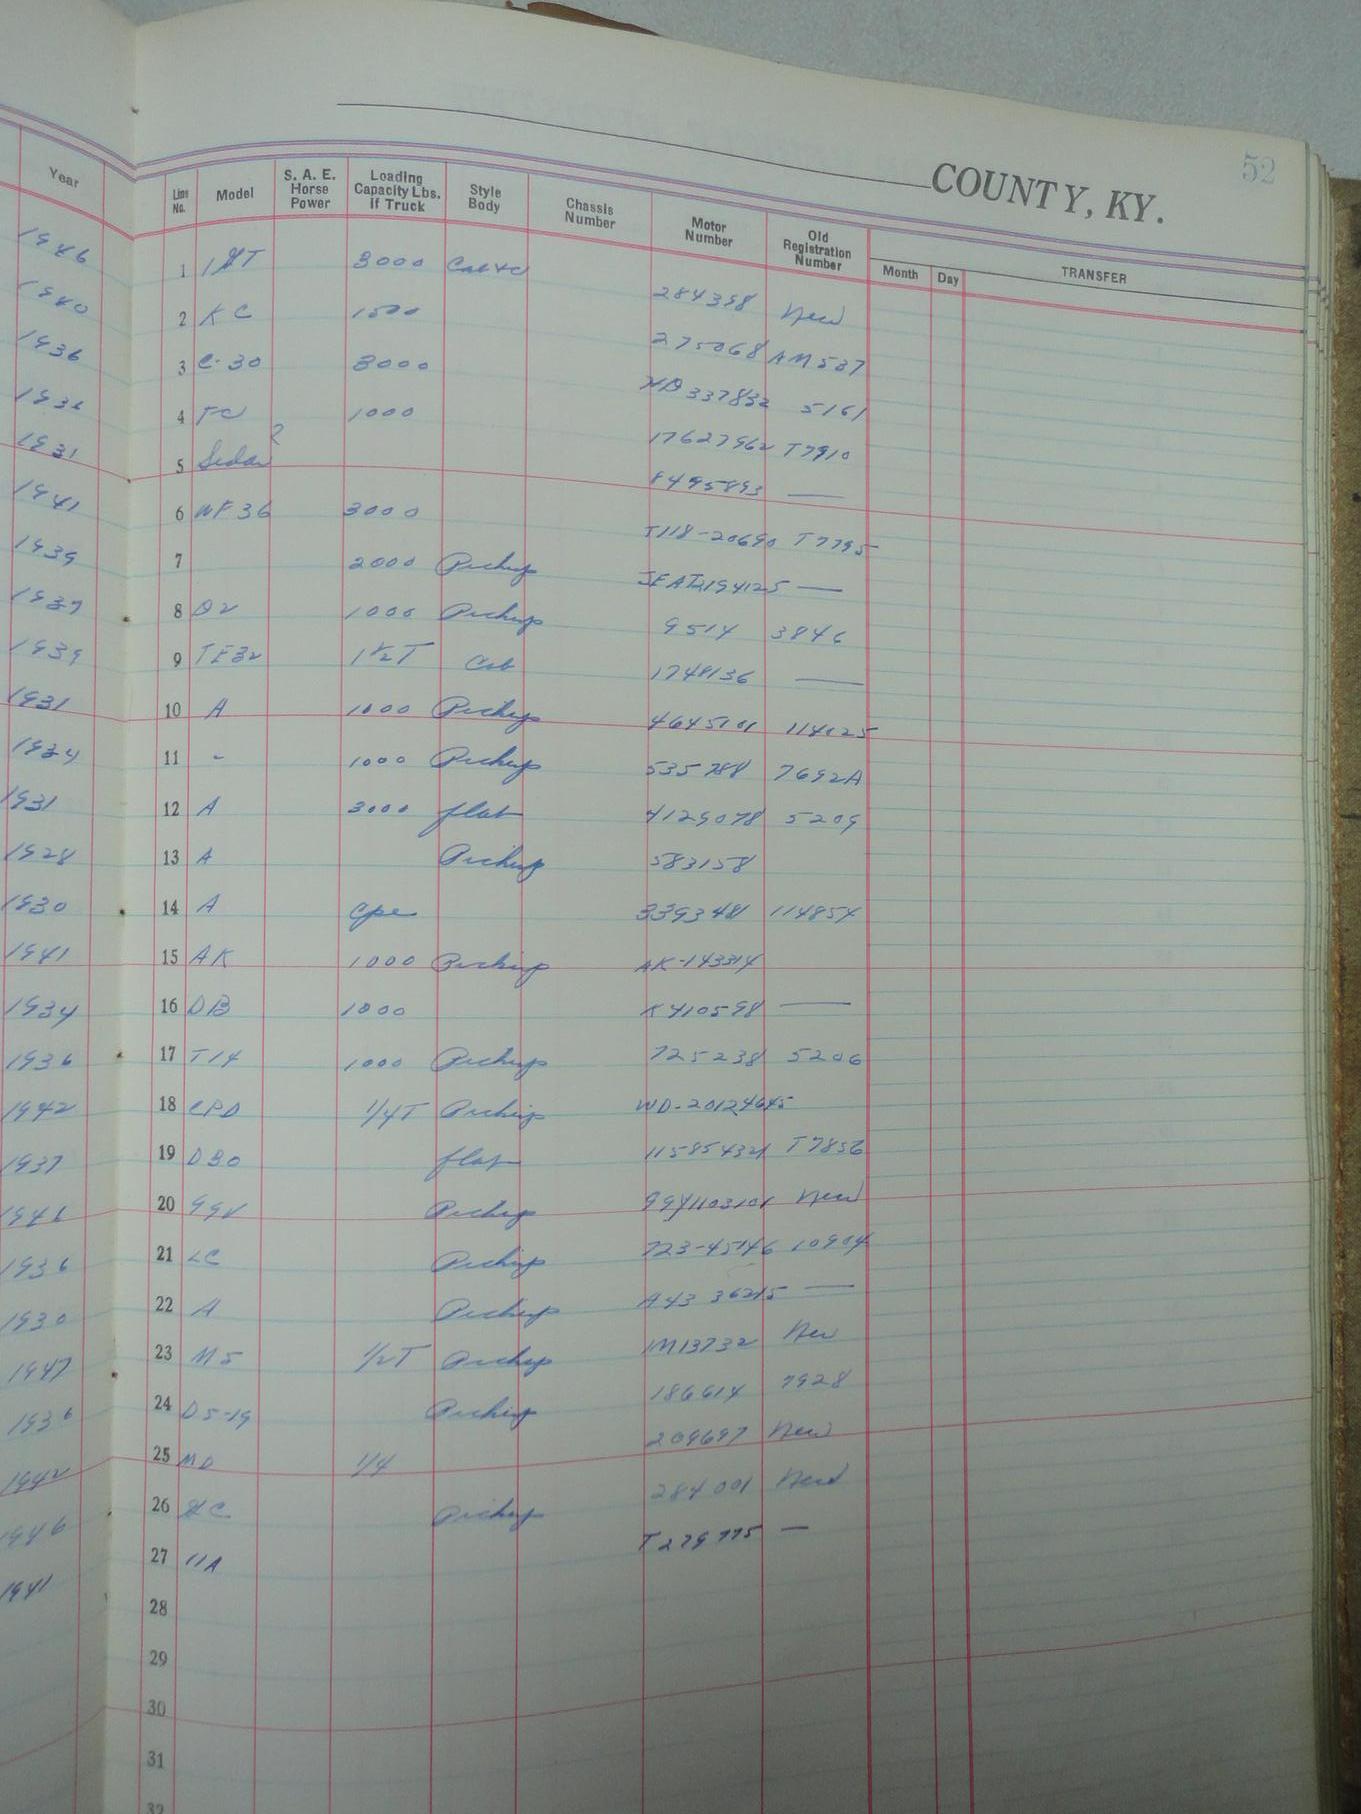 52
COUNTY, KY.
Year Line No. Model S. A. E. Horse Power Loading Capacity Lbs. If Truck Style Body Chassis Number Motor Number Old Registration Number Month Day TRANSFER
1946 1 3000 284398 New
1940 2 KC 1500 275068 AM537
1936 3 C-30 3000 5161
1936 4 TC 1000 17627962 T7910
1931 5 Sedan ? 8495893 —
1941 6 WF36 3000 T118-20690 T7795
1939 7 2000 Pickup —
1937 8 D2 1000 Pickup 9514 3846
1939 9 TE32 1½T Cab 1748136 —
1931 10 A 1000 Pickup 4645101 114125
1934 11 - 1000 Pickup 535788 7692A
1931 12 A 3000 flat 4129078 5209
1928 13 A Pickup 583158
1930 14 A Cpe 3393481 114854
1941 15 AK 1000 Pickup AK-143314
1934 16 DB 1000 K410598 —
1936 17 T14 1000 Pickup 725238 5206
1942 18 1/4T Pickup WD-20124645
1937 19 D30 flat T7856
1946 20 99V Pickup New
1936 21 LC Pickup 10904
1930 22 A Pickup A43 36215 —
1947 23 M5 1/2T Pickup 1M13732 New
1936 24 D5-19 Pickup 186614 7928
1942 25 MD 1/4 209697 New
1946 26 Pickup 284001 New
1941 27 11A T279775 —
28
29
30
31
32